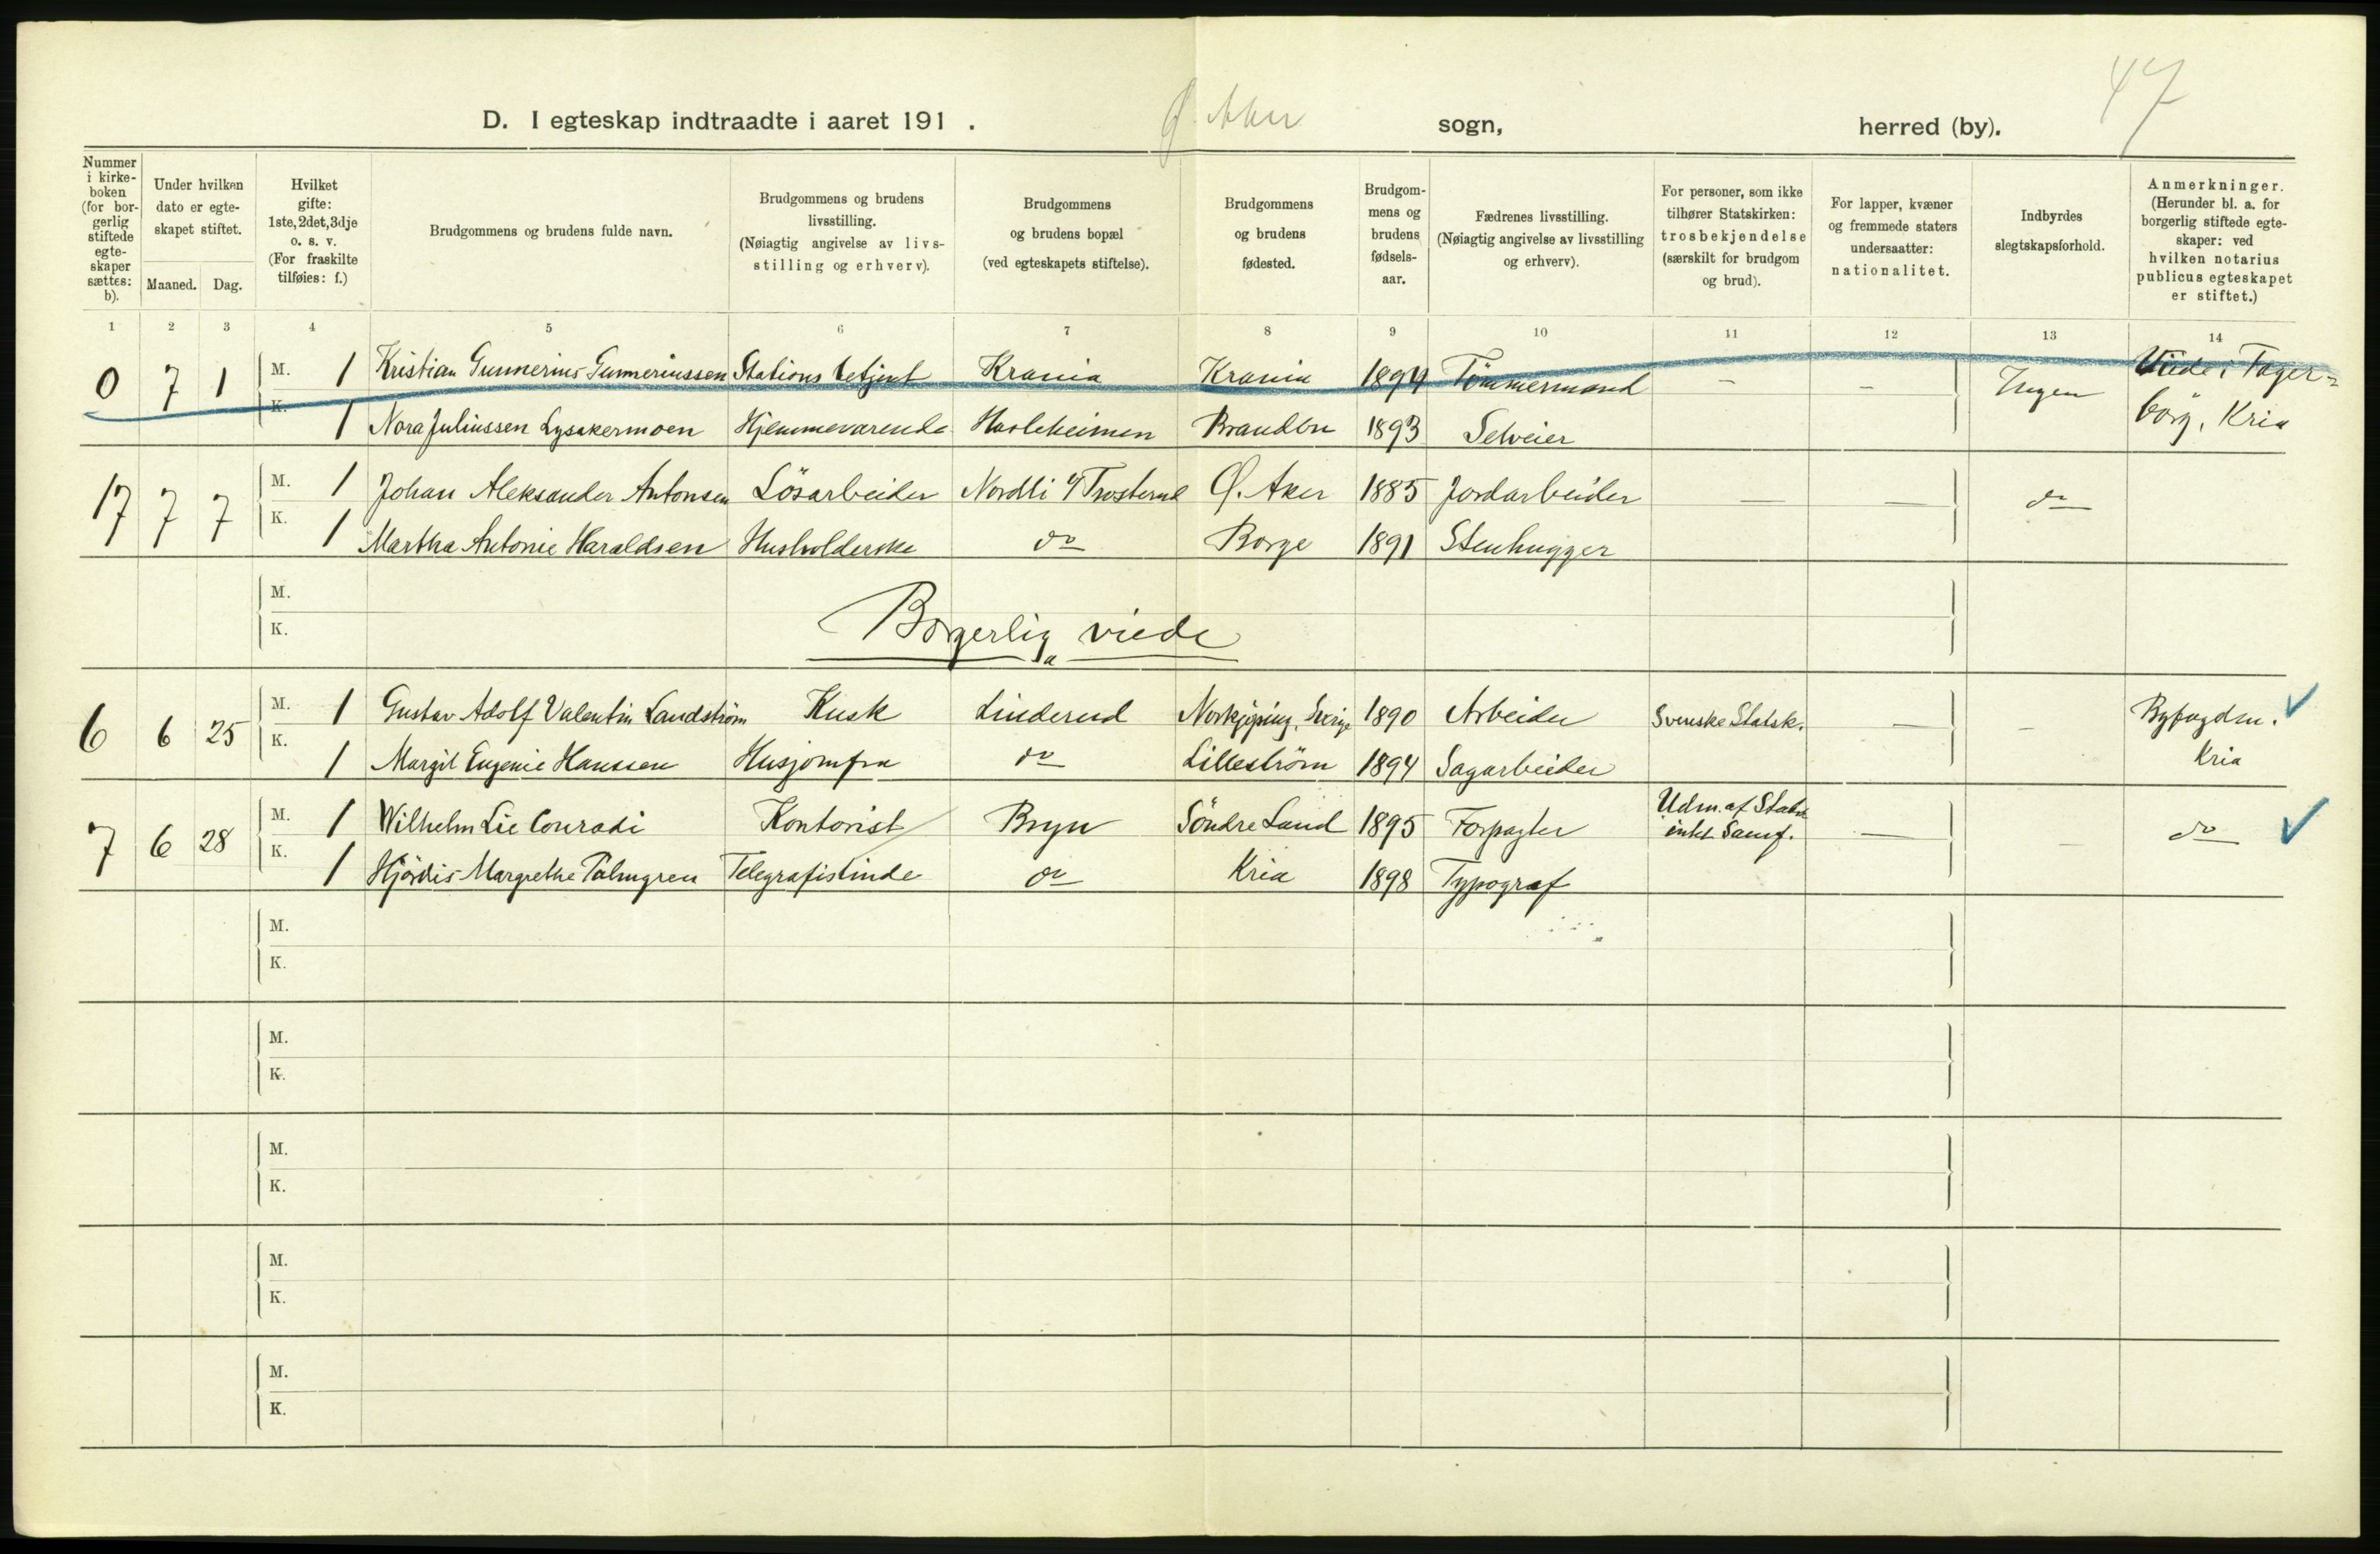 47
D. I egteskap indtraadte i aaret 191 . Ø. Aker sogn, herred (by).
Nummer i kirke-boken (for bor-gerlig stiftede egte-skaper sættes: b).
Under hvilken dato er egte-skapet stiftet.
Maaned. Dag.
Hvilket gifte: 1ste, 2det, 3dje o. s. v. (For fraskilte tilføies: f.)
Brudgommens og brudens fulde navn.
Brudgommens og brudens livsstilling. (Nøiagtig angivelse av livs-stilling og erhverv).
Brudgommens og brudens bopæl (ved egteskapets stiftelse).
Brudgommens og brudens fødested.
Brudgom-mens og brudens fødsels-aar.
Fædrenes livsstilling. (Nøiagtig angivelse av livsstilling og erhverv).
For personer, som ikke tilhører Statskirken: trosbekjendelse (særskilt for brudgom og brud).
For lapper, kvæner og fremmede staters undersaatter: nationalitet.
Indbyrdes slegtskapsforhold.
Anmerkninger. (Herunder bl. a. for borgerlig stiftede egte-skaper: ved hvilken notarius publicus egteskapet er stiftet.)
1 2 3 4 5 6 7 8 9 10 11 12 13 14
0 7 1 M. 1 Kristian Gunnerius Gunneriussen Stationsbetjent Krania Krania 1894 Tömmermand – – Ingen Viede i Fager-
K. 1 Nora Juliussen Lysakermoen Hjemmeværende Hasleheimen Brandbu 1893 Selveier borg, Kria
17 7 7 M. 1 Johan Aleksander Antonsen Lösarbeider Nordli Ø. Aker 1885 Jordarbeider — — do
K. 1 Martha Antonie Haraldsen Husholderske do Borge 1891 Stenhugger
M.
K.
Borgerlig viede
6 6 25 M. 1 Gustav Adolf Valentin Landström Kusk Linderud Norkjøping, Sverige 1890 Arbeider Svenske Statsk. — – Byfogden.
K. 1 Margit Eugenie Hanssen Husjomfru do Lilleström 1894 Sagarbeider Kria
7 6 28 M. 1 Wilhelm Lie Conradi Kontorist Bryn Söndre Land 1895 Forpagter Udm. af Statsk. intet Samf. — – do
K. 1 Hjördis Margrethe Palmgren Telegrafistinde do Kria 1898 Typograf
M.
K.
M.
K.
M.
K.
M.
K.
M.
K.